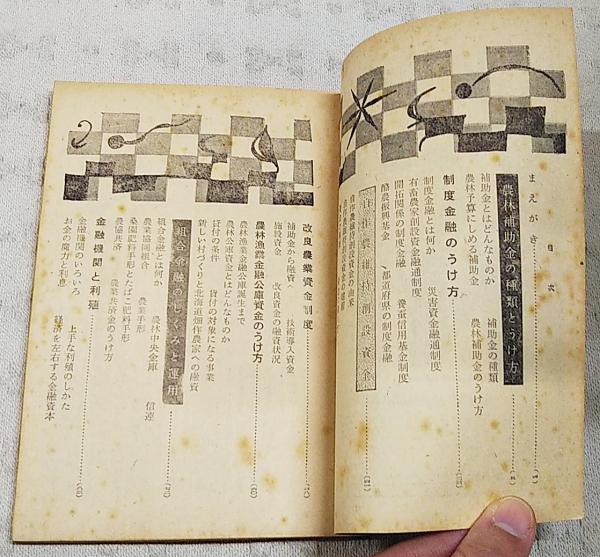 目次
まえがき
農林補助金の種類とうけ方
補助金とはどんなものか　補助金の種類
農林予算にしめる補助金　農林補助金のうけ方
制度金融のうけ方
制度金融とは何か　災害資金融通制度
有畜農家創設資金融通制度
開拓関係の制度金融　養蚕信用基金制度
酪農振興基金　都道府県の制度金融
自作農維持創設資金
自作農維持創設資金の由来
改良農業資金制度
補助金から融資へ　技術導入資金
施設資金　改良資金の融資状況
農林漁業金融公庫資金のうけ方
農林漁業金融公庫誕生まで
農林公庫資金とはどんなものか
貸付の条件　貸付の対象になる事業
新しい村づくりと北海道畑作農家への融資
組合金融のしくみと運用
組合金融とは何か　農林中央金庫
農業協同組合　信連
桑園肥料手形とたばこ肥料手形　農業手形
農協共済　農業共済金のうけ方
金融機関と利殖
金融機関のいろいろ　上手な利殖のしかた
お金の魔力と利息　経済を左右する金融資本